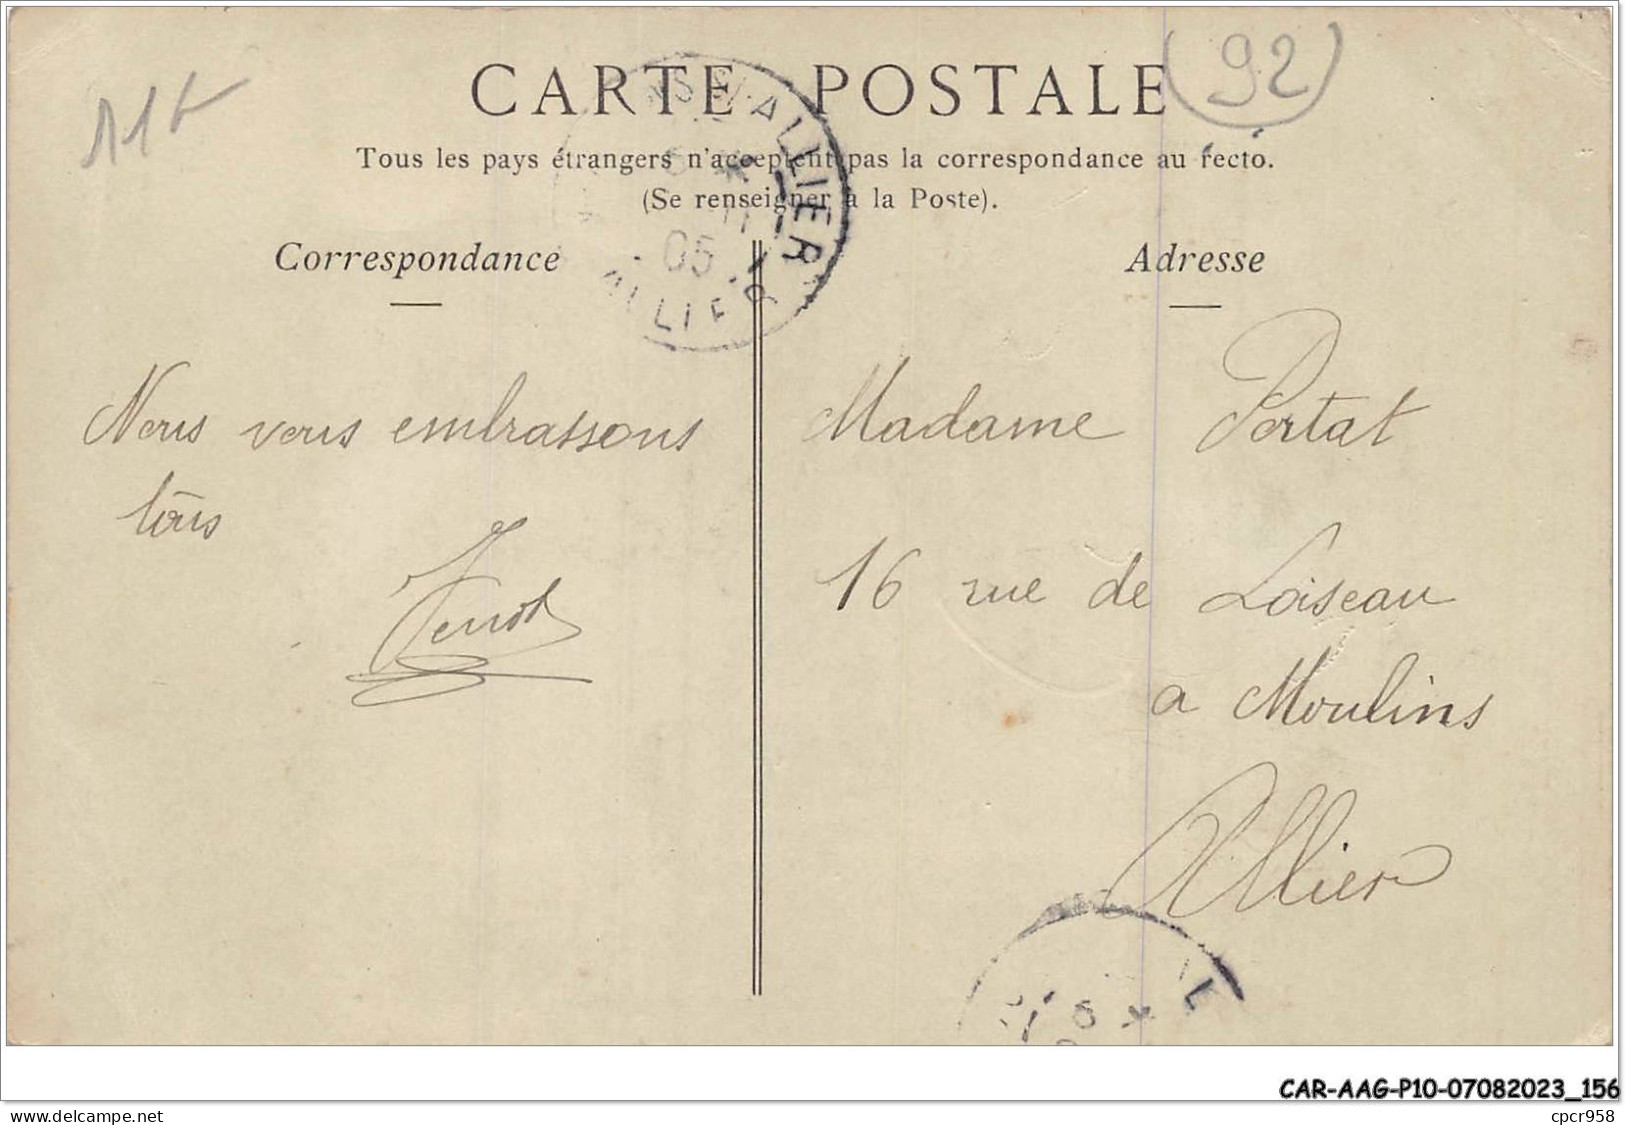 92
CARTE POSTALE
Tous les pays étrangers n'acceptent pas la correspondance au recto.
(Se renseigner à la Poste).
Correspondance
Nous vous embrassons
tous
Adresse
Madame Portat
16 rue de Loiseau
a Moulins
Allier
ALLIER
05
CAR-AAG-P10-07082023_156
www.delcampe.net
cpcr958